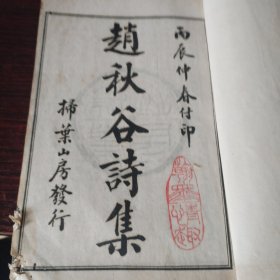 丙辰仲春付印
趙秋谷詩集
掃葉山房發行